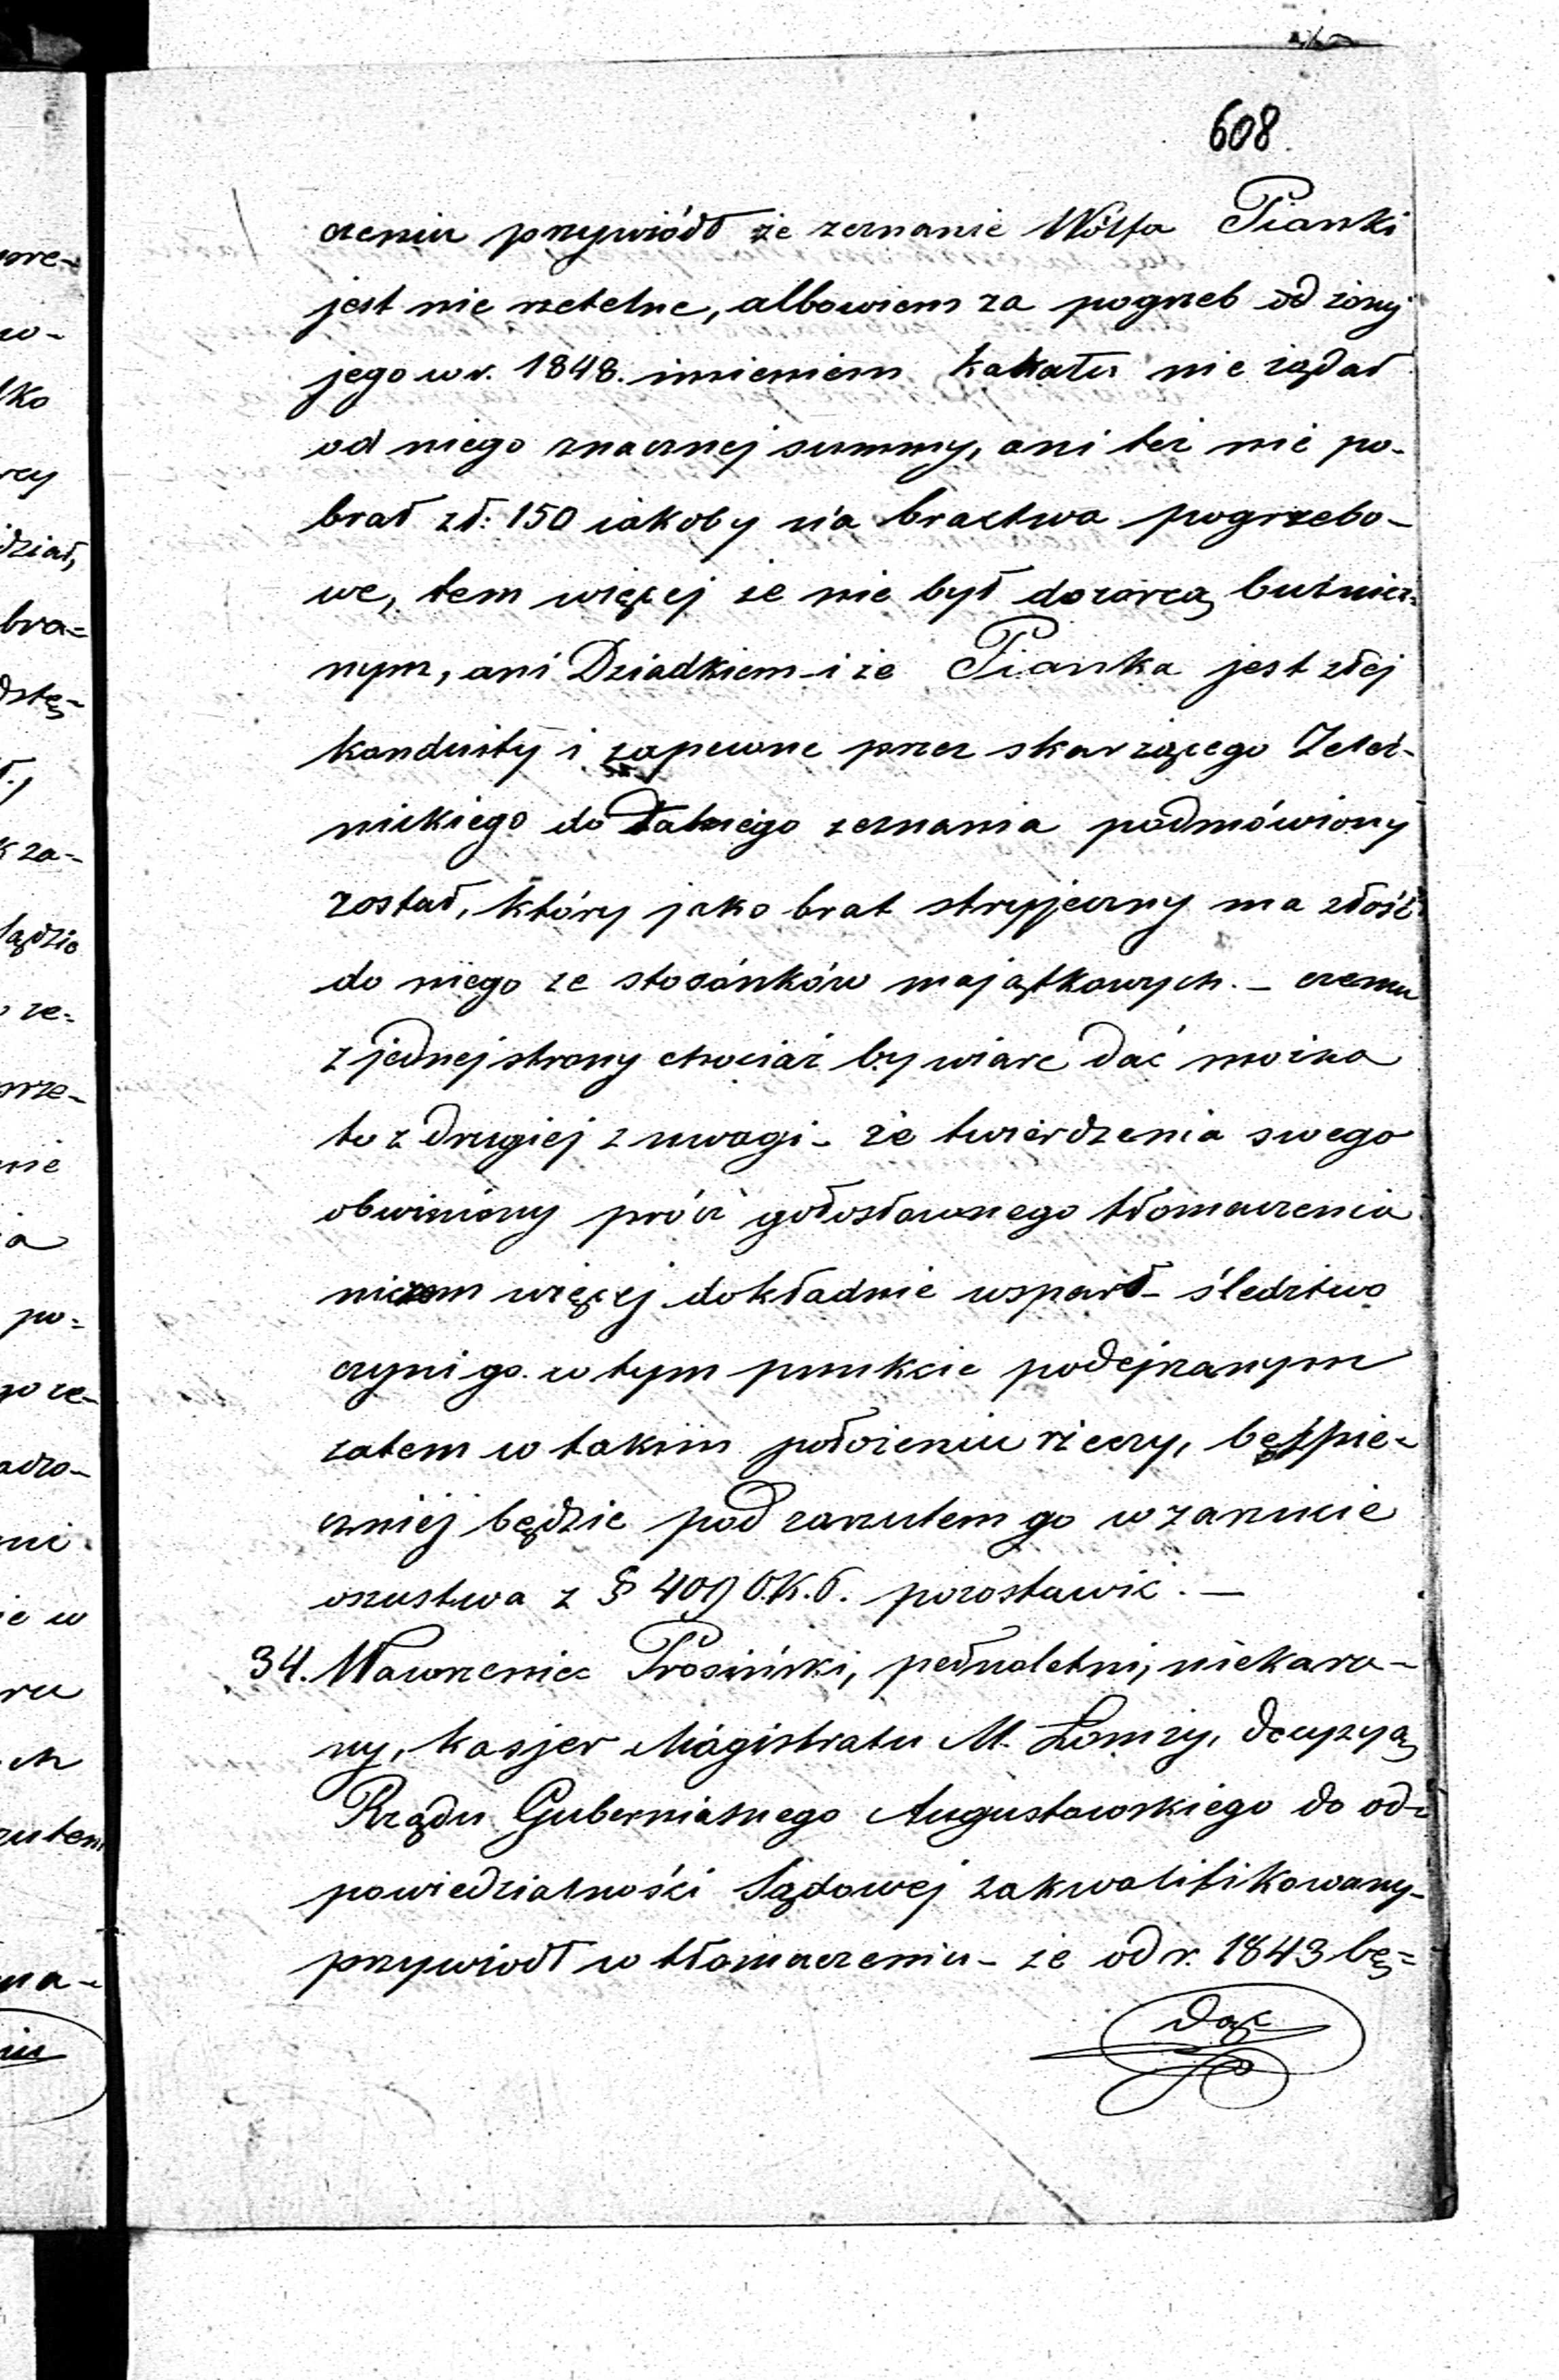 608.
czeniu przywiódł że zeznanie Wólfa Pianki
jest nie rzetelne, albowiem za pogrzeb od żony
jego w r. 1848. imieniem kahału nie żądał
od niego znacznej summy, ani też nie po-
brał zł: 150 iakoby na bractwa pogrzebo-
we, tem więcej że nie był dozorcą bużnicz-
nym, ani Dziadkiem - i że Pianka jest złej
konduity i zapewne przez skarzącego Żeleź-
nickiego do takiego zeznania podmówiony
został, który jako brat stryjeczny ma złość
do niego ze stosónków majątkowych. - czemu
z jednej strony chociaż by wiarę dać można
to z drugiej z uwagi - że twierdzenia swego
obwiniony prócz gołosłownego tłomaczenia
niczem więcej dokładnie wsparł - śledztwo
czyni go w tym punkcie podejrzanym
zatem w takim położeniu rzeczy, bezpie-
czniej będzie pod zarzutem go w zarzucie
oszustwa z § 409 pozostawić. -
34. Wawrzeniec Prosiński, pełnoletni, niekara-
ny, kasjer Magistratu M. Łomży, decyzyą
Rządu Gubernialnego Augustowskiego do od-
powiedzialności Sądowej zakwalifikowany -
przywiódł w tłomaczeniu - że od r. 1843 bę-
dąc